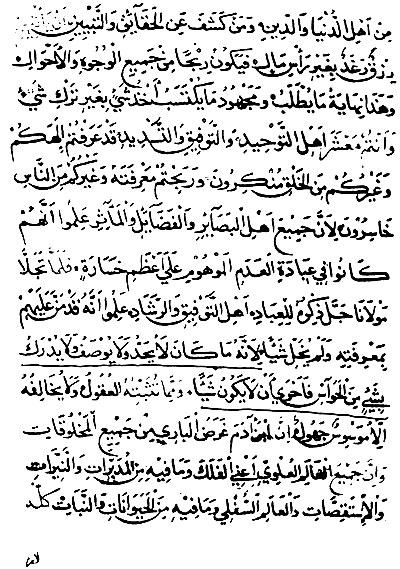 من اهل الدنيا والدين ومن كشف عن الحقائق والتبيين
رزق رغد بغير رأس مال فيكون ربحًا من جميع الوجوه والاحوال
وهذا نهاية ما يطلب ومجهود ما يكتسب أخذ شيء بغير ترك شيء
وانتم معشر اهل التوحيد والتوفيق والتسديد قد عرفتم الهكم
وغيركم من الخلق منكرون وربحتم معرفته وغيركم من الناس
خاسرون لأن جميع اهل البصائر والفضائل والمآثر علموا انهم
كانوا في عبادة العدم الموهوم على اعظم خسارة فلما تجلا
مولانا جل ذكره للعباد اهل التوفيق والرشاد علموا أنه قد من عليهم
بمعرفته ولم يخل شيئًا لأنه ما كان لا يحد ولا يوصف ولا يدرك
بشيء من الحواس فأحرى بأن لا يكون شيئًا ومما تثبته العقول ولا يخالفه
الا موسوس جهول ان لهذا آدم غرض الباري من جميع المخلوقات
وان جميع العالم العلوي أعني الفلك وما فيه من المدبرات والنيرات
والاستقصات والعالم السفلي وما فيه من الحيوانات والنبات كله